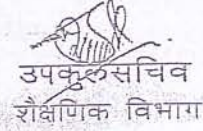 उपकुलसचिव
शैक्षणिक विभाग